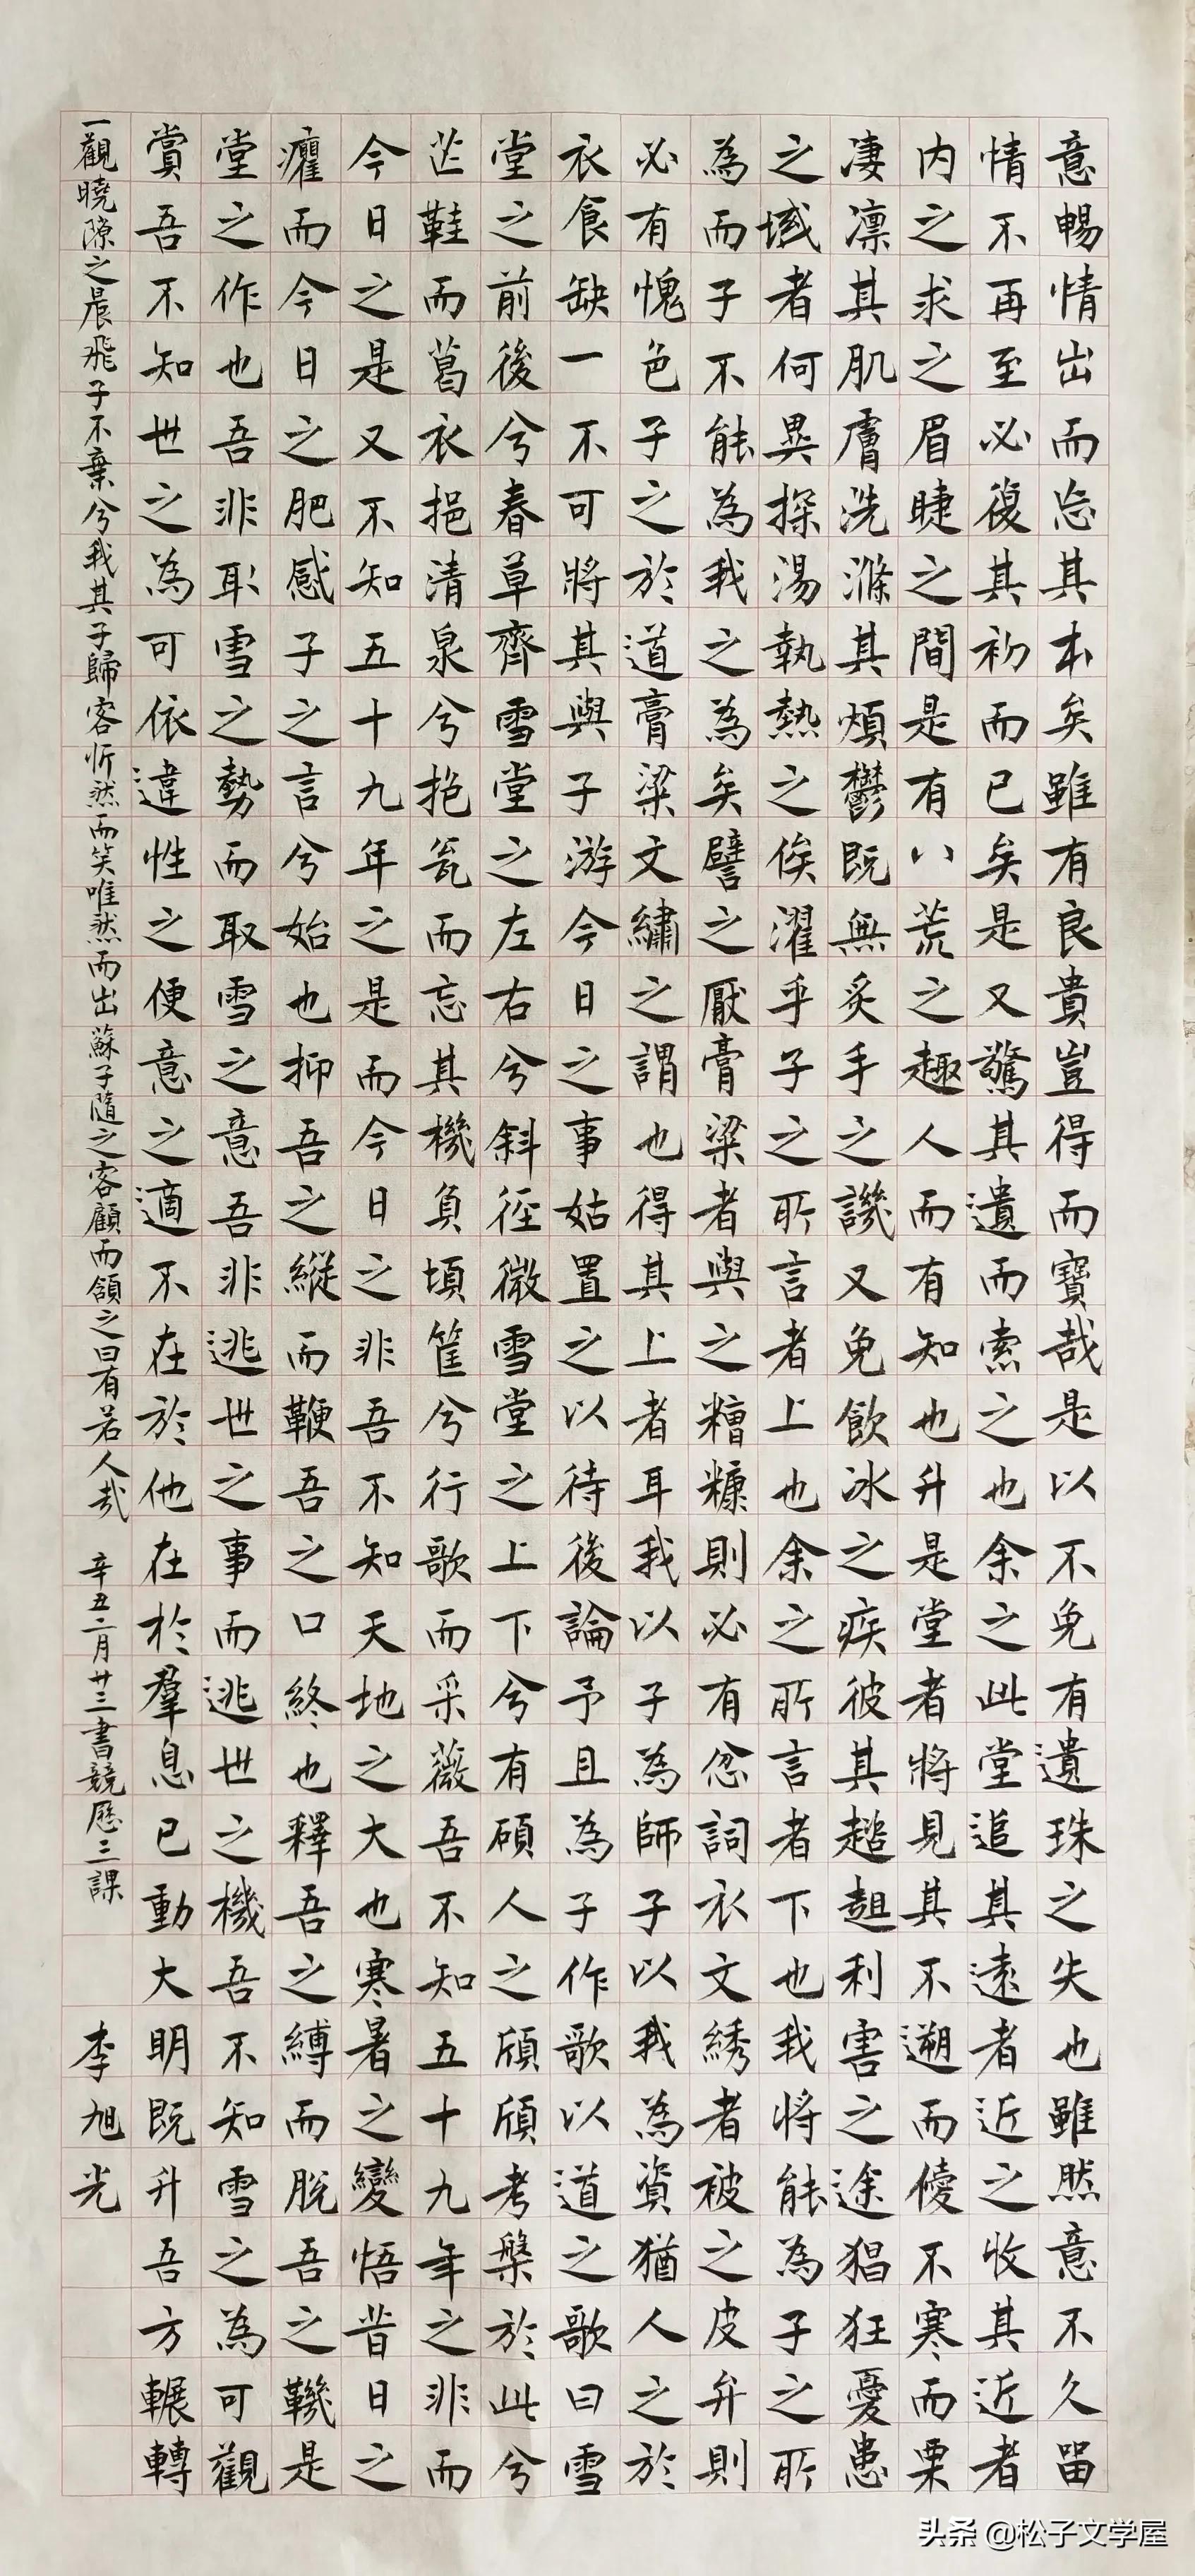 意暢情出而忘其本矣雖有良貴豈得而寶哉是以不免有遺珠之失也雖然意不久留
情不再至必復其初而已矣是又驚其遺而索之也余之此堂追其遠者近之收其近者
内之求之眉睫之間是有八荒之趣人而有知也升是堂者將見其不遡而僾不寒而栗
凄凛其肌膚洗滌其煩鬱既無炙手之譏又免飲冰之疾彼其趦趄利害之途猖狂憂患
之域者何異探湯執熱之俟濯乎子之所言者上也余之所言者下也我將能為子之所
為而子不能為我之為矣譬之厭膏粱者與之糟糠則必有忿詞衣文綉者被之皮弁則
必有愧色子之於道膏粱文繡之謂也得其上者耳我以子為師子以我為資猶人之於
衣食缺一不可將其與子游今日之事姑置之以待後論予且為子作歌以道之歌曰雪
堂之前後兮春草齊雪堂之左右兮斜徑微雪堂之上下兮有碩人之頎頎考槃於此兮
芒鞋而葛衣挹清泉兮抱瓮而忘其機負頃筐兮行歌而采薇吾不知五十九年之非而
今日之是又不知五十九年之是而今日之非吾不知天地之大也寒暑之變悟昔日之
癯而今日之肥感子之言兮始也抑吾之縱而鞭吾之口終也釋吾之縛而脫吾之鞿是
堂之作也吾非取雪之勢而取雪之意吾非逃世之事而逃世之機吾不知雪之為可觀
賞吾不知世之為可依違性之便意之適不在於他在於羣息已動大明既升吾方輾轉
一觀曉隙之晨飛子不棄兮我其子歸客忻然而笑唯然而出蘇子隨之客顧而頷之曰有若人哉 辛丑二月廿三書競慝三課
李旭光
头条 @松子文学屋